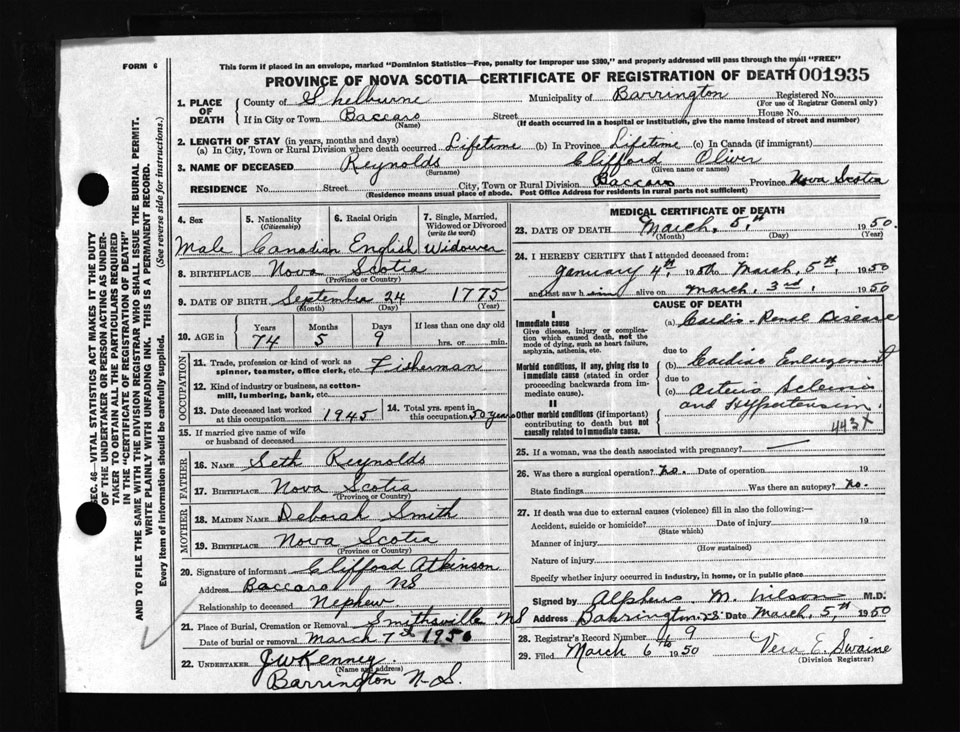 FORM 6
This form if placed in an envelope, marked "Dominion Statistics—Free, penalty for improper use $300," and properly addressed will pass through the mail "FREE"
PROVINCE OF NOVA SCOTIA—CERTIFICATE OF REGISTRATION OF DEATH 001935
1. PLACE OF DEATH County of Shelburne Municipality of Barrington Registered No.
(For use of Registrar General only)
If in City or Town Baccaro Street House No.
(Name) (If death occurred in a hospital or institution, give the name instead of street and number)
2. LENGTH OF STAY (in years, months and days)
(a) In City, Town or Rural Division where death occurred Lifetime (b) In Province Lifetime (c) In Canada (if immigrant)
3. NAME OF DECEASED Reynolds Clifford Oliver
(Surname) (Given name or names)
RESIDENCE No. Street City, Town or Rural Division Baccaro Province Nova Scotia
(Residence means usual place of abode. Post Office Address for residents in rural parts not sufficient)
4. Sex 5. Nationality (Citizenship) 6. Racial Origin 7. Single, Married, Widowed or Divorced (write the word)
Male Canadian English Widower
8. BIRTHPLACE Nova Scotia
(Province or Country)
9. DATE OF BIRTH September 24 1775
(Month) (Day) (Year)
10. AGE in Years Months Days If less than one day old
74 5 9 hrs. or min.
OCCUPATION
11. Trade, profession or kind of work as spinner, teamster, office clerk, etc. Fisherman
12. Kind of industry or business, as cotton-mill, lumbering, bank, etc.
13. Date deceased last worked at this occupation 1945 14. Total yrs. spent in this occupation 50 years
15. If married give name of wife or husband of deceased
FATHER
16. NAME Seth Reynolds
17. BIRTHPLACE Nova Scotia
(Province or Country)
MOTHER
18. MAIDEN NAME Deborah Smith
19. BIRTHPLACE Nova Scotia
(Province or Country)
20. Signature of informant Clifford Atkinson
Address Baccaro NS
Relationship to deceased Nephew
21. Place of Burial, Cremation or Removal Smithsville NS
Date of burial or removal March 7th 1950
22. UNDERTAKER J W Kenney
(Name and address)
Barrington N.S.
MEDICAL CERTIFICATE OF DEATH
23. DATE OF DEATH March, 5,th 1950
(Month) (Day) (Year)
24. I HEREBY CERTIFY that I attended deceased from:
January 4,th, 1950 to March, 5,th, 1950
and last saw him alive on March, 3rd, 1950
CAUSE OF DEATH
I
Immediate cause
Give disease, injury or complication which caused death, not the mode of dying, such as heart failure, asphyxia, asthenia, etc.
(a) Cardio-Renal Disease
due to
Morbid conditions, if any, giving rise to immediate cause (stated in order proceeding backwards from immediate cause).
(b) Cardiac Enlargement
due to
(c)
and Hypertension.
II
Other morbid conditions (if important) contributing to death but not causally related to immediate cause.
443X
25. If a woman, was the death associated with pregnancy?
26. Was there a surgical operation? no. Date of operation 19
State findings Was there an autopsy? no.
27. If death was due to external causes (violence) fill in also the following:—
Accident, suicide or homicide? Date of injury 19
(State which)
Manner of injury
(How sustained)
Nature of injury
Specify whether injury occurred in industry, in home, or in public place
Signed by Alpheus M. Wilson M.D.
Address Barrington, N.S. Date March, 5,th 1950
28. Registrar's Record Number 9
29. Filed March 6th 1950 Vera E. Swaine
(Division Registrar)
SEC. 46—VITAL STATISTICS ACT MAKES IT THE DUTY
OF THE UNDERTAKER OR PERSON ACTING AS UNDER-
TAKER TO OBTAIN ALL THE PARTICULARS REQUIRED
IN THE "CERTIFICATE OF REGISTRATION OF DEATH"
AND TO FILE THE SAME WITH THE DIVISION REGISTRAR WHO SHALL ISSUE THE BURIAL PERMIT.
WRITE PLAINLY WITH UNFADING INK. THIS IS A PERMANENT RECORD.
Every item of information should be carefully supplied. (See reverse side for instructions.)